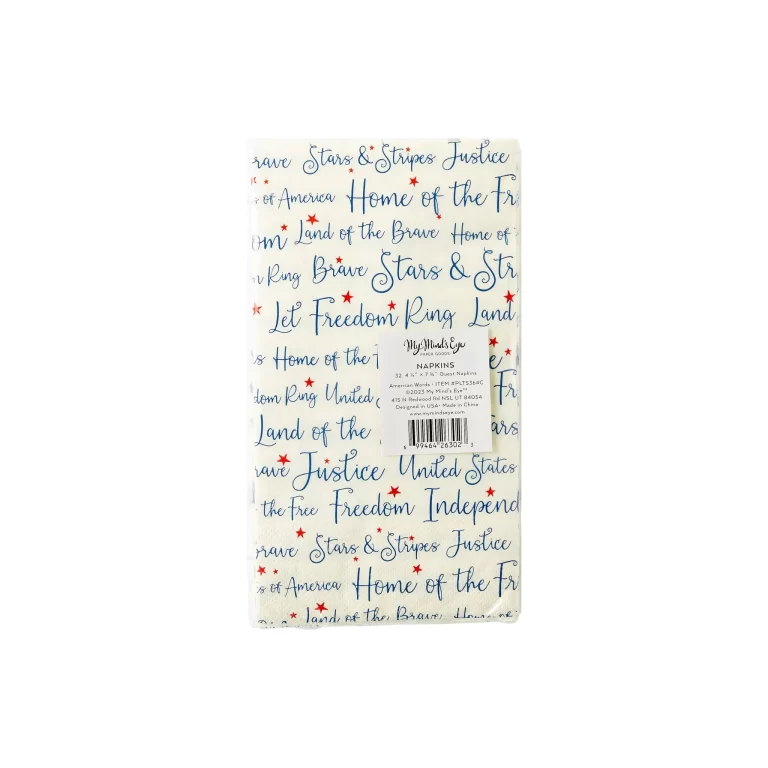 rave Stars & Stripes Justice
s of America Home of the Fr
om Land of the Brave Home of
n Ring Brave Stars & Str
Let Freedom Ring Land
s Home of the f
dom Ring United
Land of the
ars
rave Justice United States
the Free Freedom Independ
rave Stars & Stripes Justice
s of America Home of the Fr
Land of the Brave Home of
My Mind's Eye
PAPER GOODS
NAPKINS
32, 4 ¼" × 7 ¾" Guest Napkins
American Words • ITEM #PLTS364C
©2023 My Mind's Eye™
415 N Redwood Rd NSL UT 84054
Designed in USA • Made in China
www.mymindseye.com
6 99464 26302 3